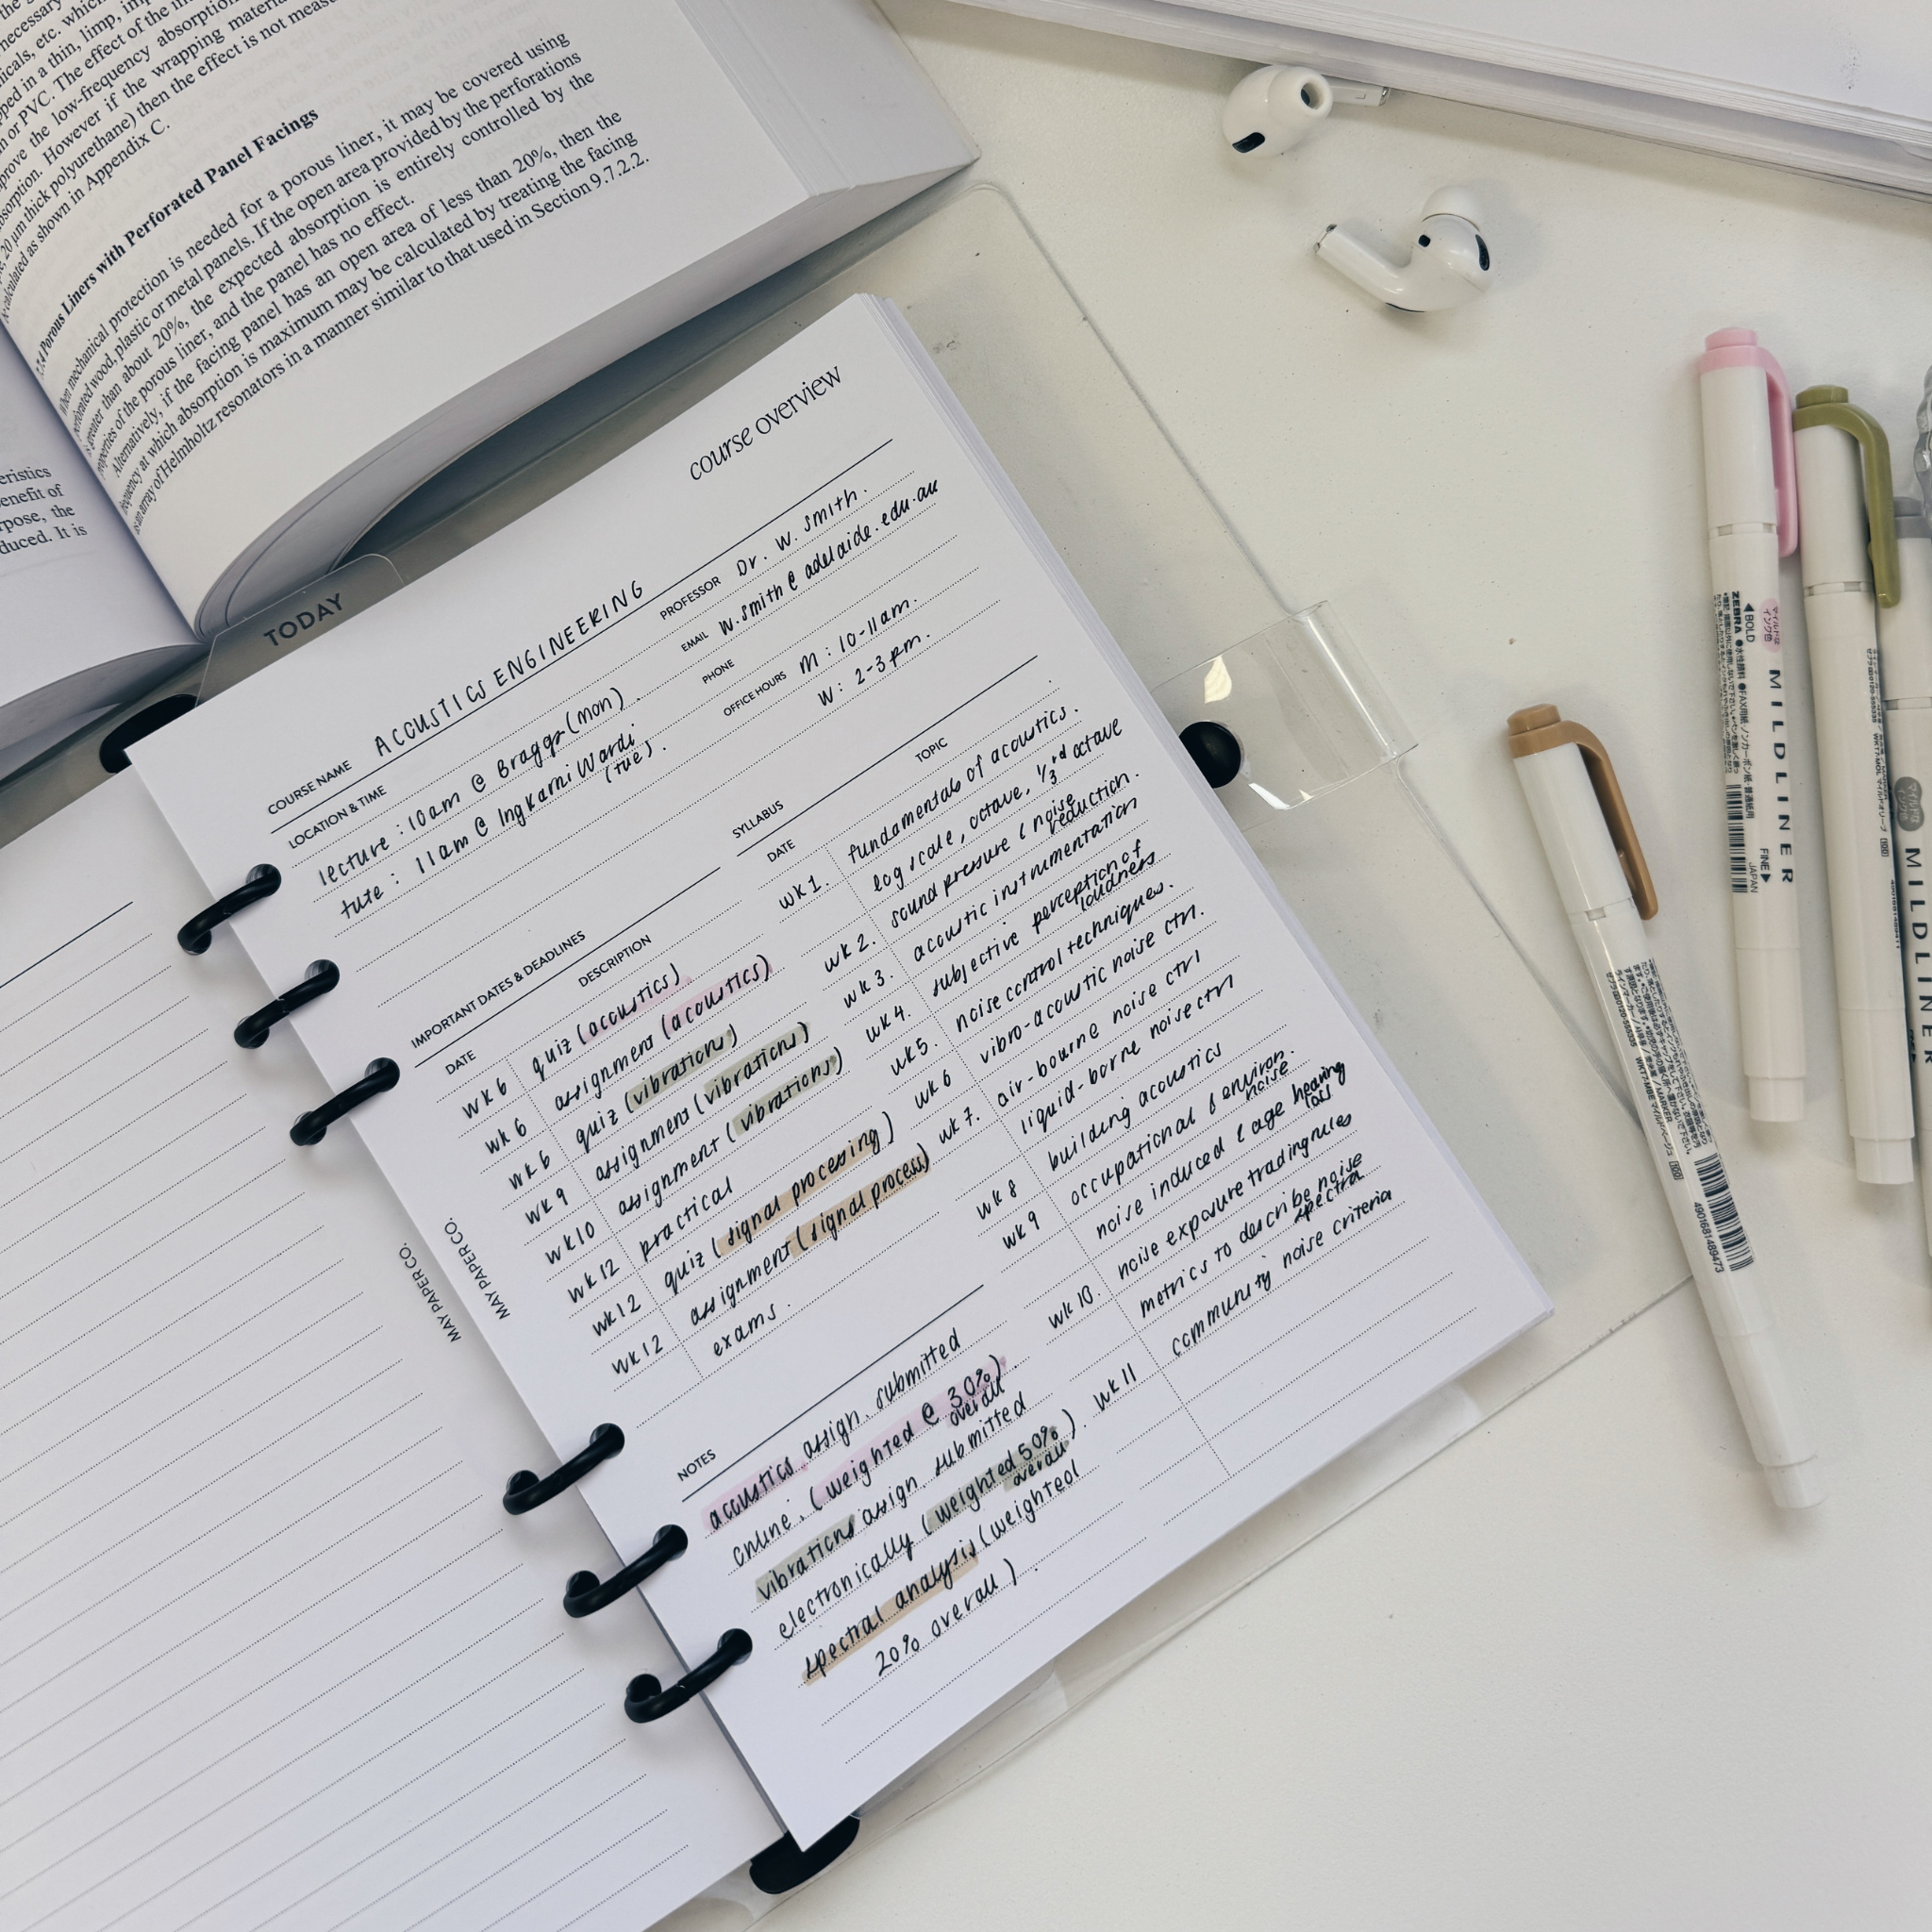 necessary
icals, etc. which
pped in a thin, limp, imp
n or PVC. The effect of the in
prove the low-frequency absorption
sorption. However if the wrapping materia
20 μm thick polyurethane) then the effect is not meas
calculated as shown in Appendix C.
Porous Liners with Perforated Panel Facings
When mechanical protection is needed for a porous liner, it may be covered using
perforated wood, plastic or metal panels. If the open area provided by the perforations
is greater than about 20%, the expected absorption is entirely controlled by the
properties of the porous liner, and the panel has no effect.
Alternatively, if the facing panel has an open area of less than 20%, then the
frequency at which absorption is maximum may be calculated by treating the facing
as an array of Helmholtz resonators in a manner similar to that used in Section 9.7.2.2.
eristics
enefit of
rpose, the
duced. It is
TODAY
course overview
COURSE NAME ACOUSTICS ENGINEERING
LOCATION & TIME
lecture : 10am @ Braggs (mon).
tute : 11am @ Ingkarni Wardi
(tue).
PROFESSOR Dr. W. Smith.
EMAIL w.smith@adelaide.edu.au
PHONE
OFFICE HOURS M: 10-11am.
W: 2-3pm.
IMPORTANT DATES & DEADLINES
DATE DESCRIPTION
wk 6 quiz (acoustics)
wk 6 assignment (acoustics)
wk 6 quiz (vibrations)
wk 9 assignment (vibrations)
wk 10 assignment (vibrations)
wk 12 practical
wk 12 quiz (signal processing)
wk 12 assignment (signal process)
exams.
SYLLABUS
DATE TOPIC
wk 1. fundamentals of acoustics.
log scale, octave, 1/3rd octave
sound pressure & noise
reduction.
wk 2. acoustic instrumentation
wk 3. subjective perception of
loudness
wk 4. noise control techniques.
wk 5. vibro-acoustic noise ctrl.
wk 6 air-bourne noise ctrl
wk 7. liquid-borne noise ctrl
building acoustics
wk 8 occupational & environ.
noise
wk 9 noise induced & age hearing
loss
noise exposure trading rules
wk 10. metrics to describe noise
spectra
wk 11 community noise criteria
NOTES
acoustics assign. submitted
online, (weighted @ 30%).
overall
vibrations assign. submitted
electronically (weighted 50%).
overall
spectral analysis (weighted
20% overall).
MAY PAPER CO.
MAY PAPER CO.
◀BOLD MILDLINER FINE▶
ZEBRA
JAPAN
MILDLINER
4901681489473